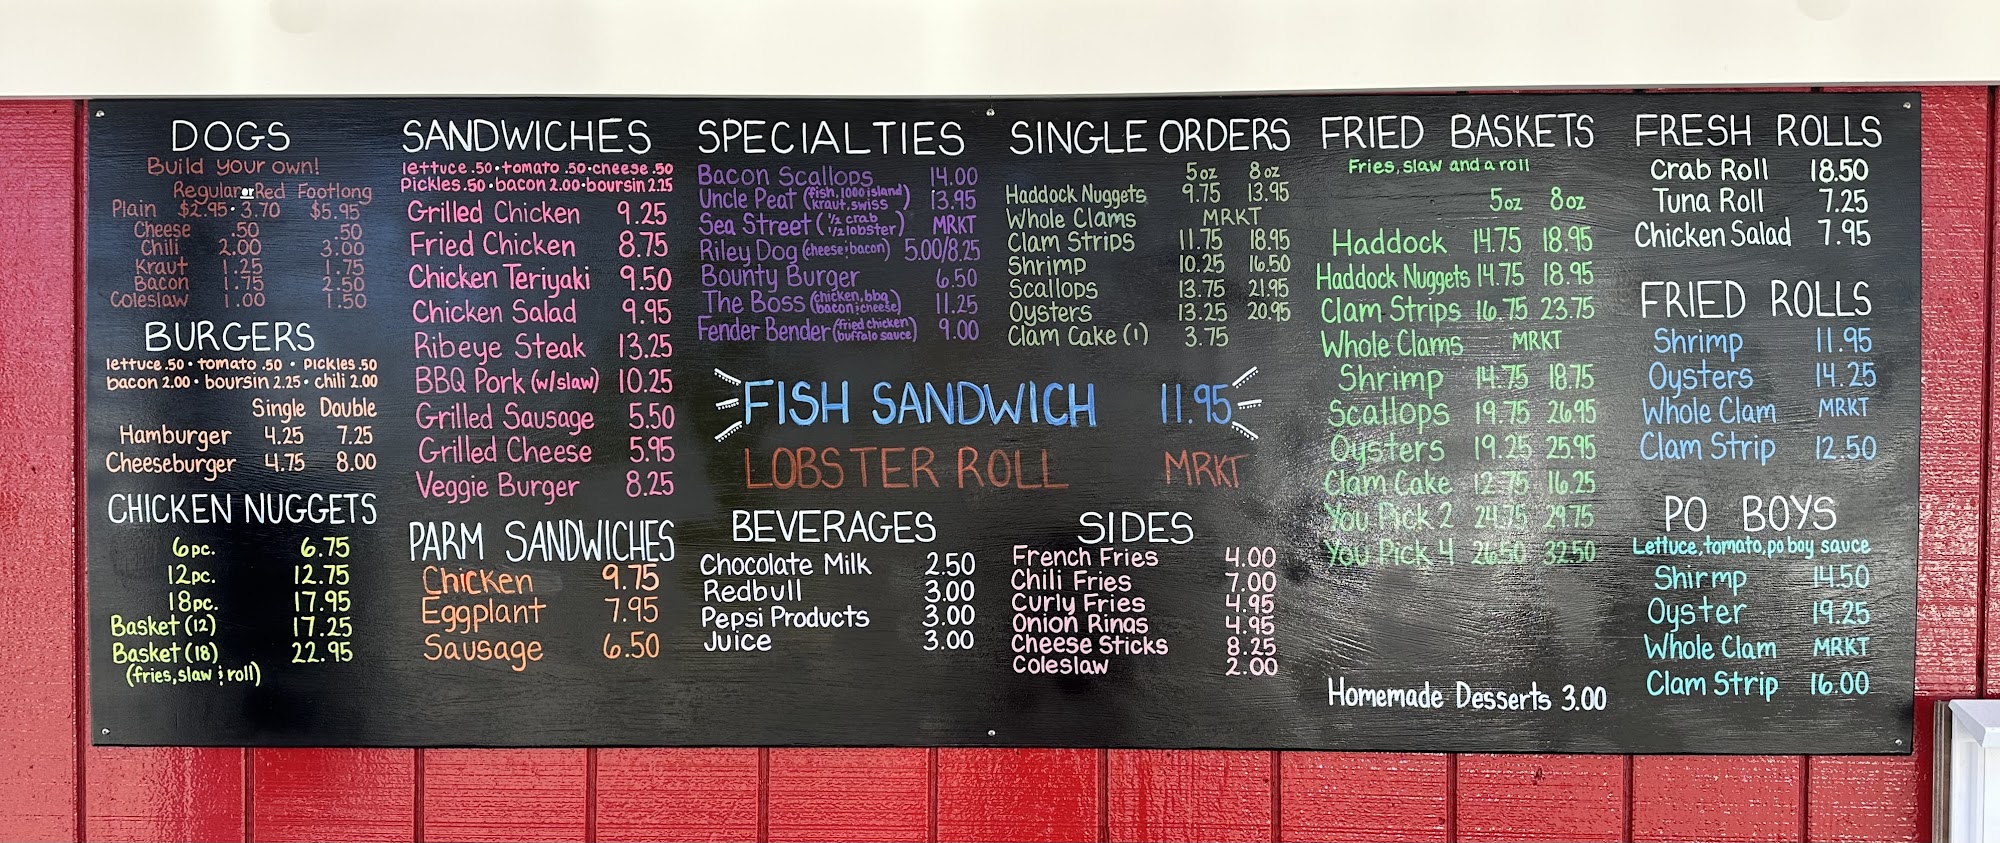 DOGS
Build your own!
Regular or Red Footlong
Plain $2.95 · 3.70 $5.95
Cheese .50 .50
Chili 2.00 3.00
Kraut 1.25 1.75
Bacon 1.75 2.50
Coleslaw 1.00 1.50
BURGERS
lettuce .50 · tomato .50 · pickles .50
bacon 2.00 · boursin 2.25 · chili 2.00
Single Double
Hamburger 4.25 7.25
Cheeseburger 4.75 8.00
CHICKEN NUGGETS
6pc. 6.75
12pc. 12.75
18pc. 17.95
Basket (12) 17.25
Basket (18) 22.95
(fries, slaw & roll)
SANDWICHES
lettuce .50 · tomato .50 · cheese .50
Pickles .50 · bacon 2.00 · boursin 2.25
Grilled Chicken 9.25
Fried Chicken 8.75
Chicken Teriyaki 9.50
Chicken Salad 9.95
Ribeye Steak 13.25
BBQ Pork (w/slaw) 10.25
Grilled Sausage 5.50
Grilled Cheese 5.95
Veggie Burger 8.25
PARM SANDWICHES
Chicken 9.75
Eggplant 7.95
Sausage 6.50
SPECIALTIES
Bacon Scallops 14.00
Uncle Peat (fish, 1000 island, kraut, swiss) 13.95
Sea Street (1/2 crab 1/2 lobster) MRKT
Riley Dog (cheese & bacon) 5.00/8.25
Bounty Burger 6.50
The Boss (chicken, bbq, bacon & cheese) 11.25
Fender Bender (fried chicken buffalo sauce) 9.00
SINGLE ORDERS
5oz 8oz
Haddock Nuggets 9.75 13.95
Whole Clams MRKT
Clam Strips 11.75 18.95
Shrimp 10.25 16.50
Scallops 13.75 21.95
Oysters 13.25 20.95
Clam Cake (1) 3.75
FISH SANDWICH 11.95
LOBSTER ROLL MRKT
BEVERAGES
Chocolate Milk 2.50
Redbull 3.00
Pepsi Products 3.00
Juice 3.00
SIDES
French Fries 4.00
Chili Fries 7.00
Curly Fries 4.95
Onion Rings 4.95
Cheese Sticks 8.25
Coleslaw 2.00
FRIED BASKETS
Fries, slaw and a roll
5oz 8oz
Haddock 14.75 18.95
Haddock Nuggets 14.75 18.95
Clam Strips 16.75 23.75
Whole Clams MRKT
Shrimp 14.75 18.75
Scallops 19.75 26.95
Oysters 19.25 25.95
Clam Cake 12.75 16.25
You Pick 2 24.75 29.75
You Pick 4 26.50 32.50
Homemade Desserts 3.00
FRESH ROLLS
Crab Roll 18.50
Tuna Roll 7.25
Chicken Salad 7.95
FRIED ROLLS
Shrimp 11.95
Oysters 14.25
Whole Clam MRKT
Clam Strip 12.50
PO BOYS
Lettuce, tomato, po boy sauce
Shirmp 14.50
Oyster 19.25
Whole Clam MRKT
Clam Strip 16.00